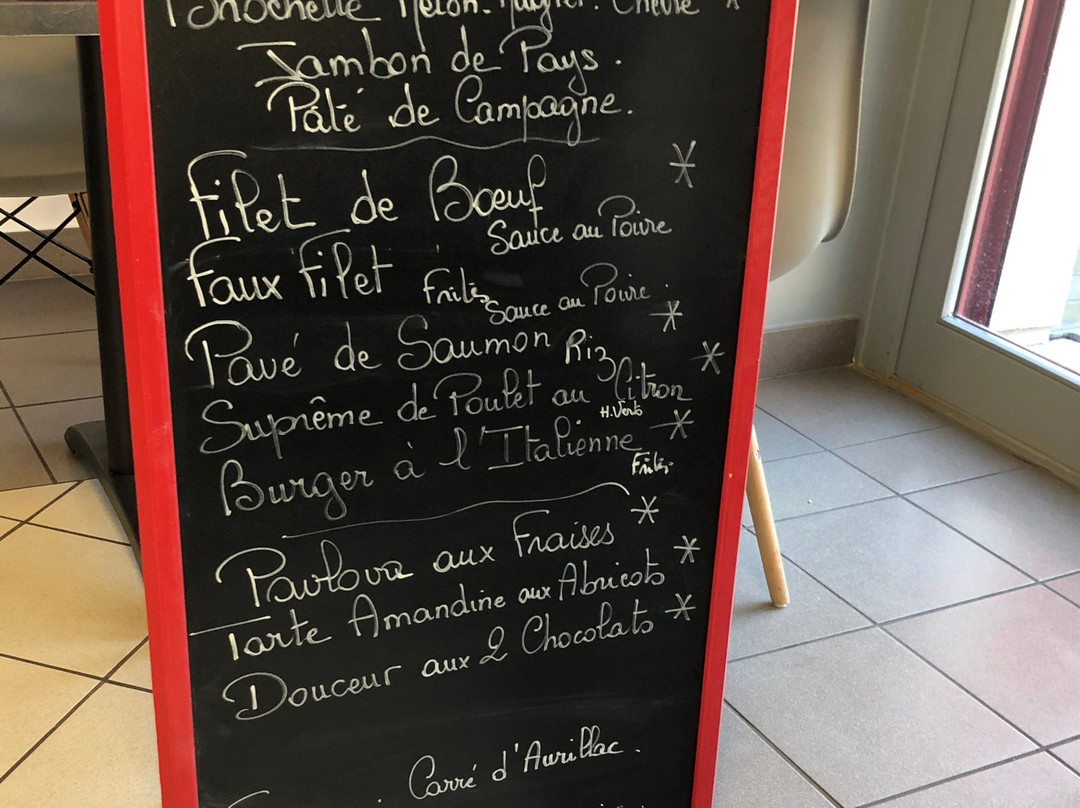 Brochette Melon. Magret. Chèvre *
Jambon de Pays.
Pâté de Campagne.
Filet de Bœuf *
Sauce au Poivre
Faux Filet Frites
Sauce au Poivre.
Pavé de Saumon Riz *
Suprême de Poulet au Citron *
H. Verts
Burger à l'Italienne *
Frites
Pavlova aux Fraises *
Tarte Amandine aux Abricots *
Douceur aux 2 Chocolats *
Carré d'Aurillac.